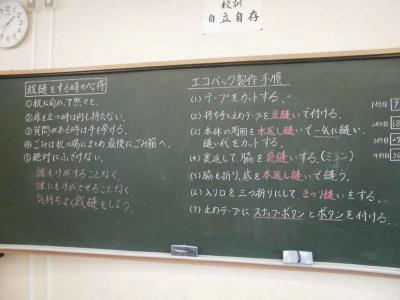 校訓
自立自存
裁縫をする時の心得
①机に向かって黙々と。
②席を立つ時は何も持たない。
③質問がある時は手を挙げる。
④ごみは机の隅にまとめ最後にごみ箱へ。
⑤絶対にふざけない。
誰もけがすることなく
誰にもけがさせることなく
気持ちよく裁縫をしよう。
エコバック製作手順
(1) テープをカットする。
(2) 持ち手と止めテープを並縫いで付ける。
(3) 本体の周囲を本返し縫いで一気に縫い、
縫い代をカットする。
(4) 裏返して、脇を袋縫いする。(ミシン)
(5) 脇を折り、底を本返し縫いで縫う。
(6) 入り口を三つ折りにして まつり縫いをする。
(7) 止めテープに スナップボタンとボタンを付ける。
1時間目
2時間目
3時間目
4時間目